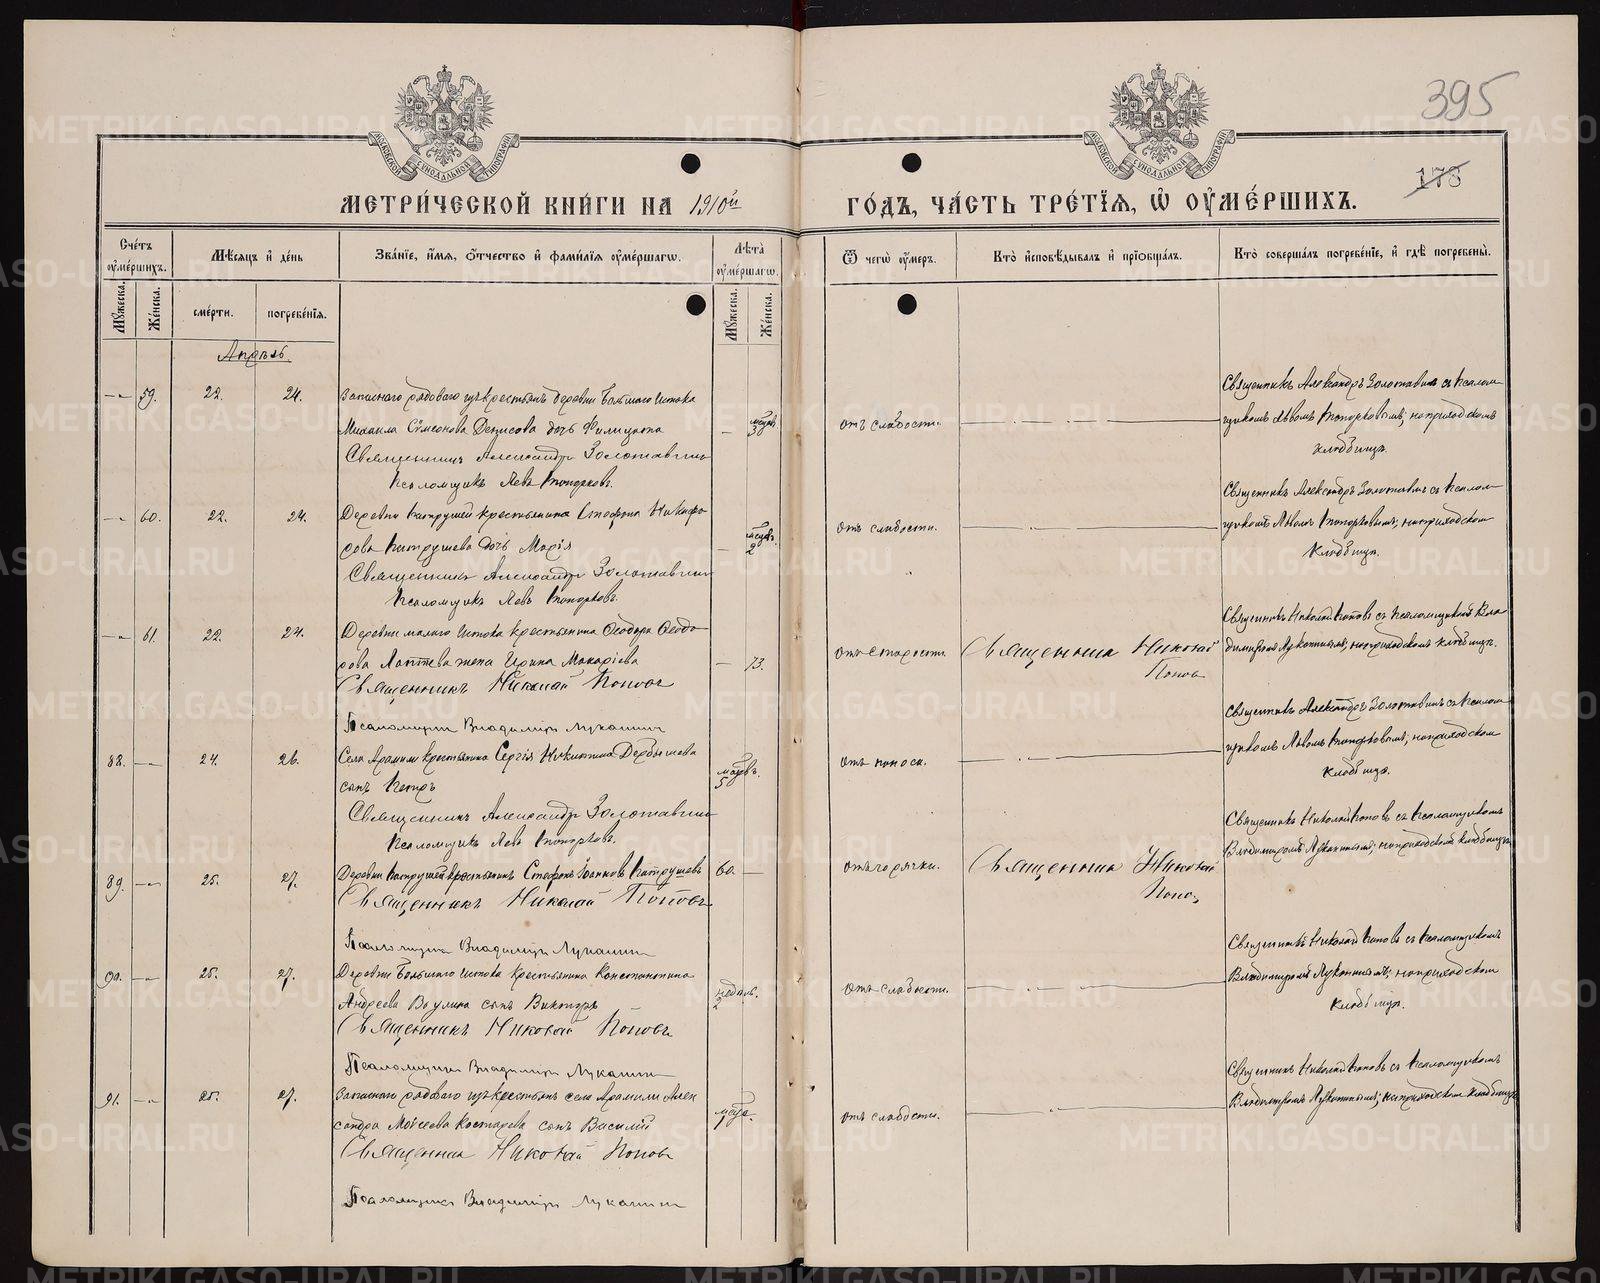 395
173
МОСКОВСКОЙ СѴНОДАЛЬНОЙ ТИПОГРАФІИ
МОСКОВСКОЙ СѴНОДАЛЬНОЙ ТИПОГРАФІИ
МЕТРИ́ЧЕСКОЙ КНИ́ГИ НА 1910й
ГО́ДЪ, ЧА́СТЬ ТРЕ́ТЇѦ, Ѡ҆ ОУ҆МЕ́РШИХЪ.
Сче́тъ оу҆ме́ршихъ.
Мѣ́сяцъ и҆ де́нь
Зва́нїе, и҆́мя, ѻ҆́тчество и҆ фами́лїя оу҆ме́ршагѡ.
Лѣ́та оу҆ме́ршагѡ.
Ѿ чегѡ̀ оу҆́меръ.
Кто̀ и҆сповѣ́дывалъ и҆ прїѡбща́лъ.
Кто̀ соверша́лъ погребе́нїе, и҆ гдѣ̀ погребены̀.
Мꙋ́жеска.
Же́нска.
сме́рти.
погребе́нїя.
Мꙋ́жеска.
Же́нска.
Апрѣль.
59. 22. 24.
Запаснаго рядоваго изъ крестьянъ деревни Большаго Истока
Михаила Сѵмеонова Денисова дочь Филицата
Священникъ Александръ Золотавинъ
Псаломщикъ Левъ Топорковъ.
3
отъ слабости.
Священникъ Александръ Золотавинъ съ псалом-
щикомъ Львомъ Топорковымъ; на приходскомъ
кладбищѣ.
60. 22. 24.
Деревни Патрушей крестьянина Стефана Никифо-
рова Патрушева дочь Марія
Священникъ Александръ Золотавинъ
Псаломщикъ Левъ Топорковъ.
2
отъ слабости.
Священникъ Александръ Золотавинъ съ псалом-
щикомъ Львомъ Топорковымъ; на приходском
кладбищѣ.
61. 22. 24.
Деревни Малаго Истока крестьянина Ѳеодора Ѳеодо-
рова Лаптева жена Ирина Макаріева
Священникъ Николай Поповъ
Псаломщикъ Владиміръ Луканинъ
73.
отъ старости.
Священникъ Николай
Поповъ
Священникъ Николай Поповъ съ псаломщикомъ Вла-
диміромъ Луканинымъ; на приходскомъ кладбищѣ.
88. 24. 26.
Села Арамили крестьянина Сергія Никитина Дербышева
сынъ Петръ
Священникъ Александръ Золотавинъ
Псаломщикъ Левъ Топорковъ.
5
отъ поноса.
Священникъ Александръ Золотавинъ съ псалом-
щикомъ Львомъ Топорковымъ; на приходском
кладбищѣ.
89. 25. 27.
Деревни Патрушей крестьянинъ Стефанъ Іоанновъ Патрушевъ
Священникъ Николай Поповъ
Псаломщикъ Владиміръ Луканинъ
60.
отъ горячки.
Священникъ Николай
Поповъ
Священникъ Николай Поповъ съ псаломщикомъ
Владиміромъ Луканинымъ; на приходскомъ кладбищѣ.
90. 25. 27.
Деревни Большаго Истока крестьянина Константина
Андреева сынъ Викторъ
Священникъ Николай Поповъ
Псаломщикъ Владиміръ Луканинъ
2 недѣль.
отъ слабости.
Священникъ Николай Поповъ съ псаломщикомъ
Владиміромъ Луканинымъ; на приходском
кладбищѣ.
91. 25. 27.
Запаснаго рядоваго изъ крестьянъ села Арамили Алек-
сандра Моисеева Костарева сынъ Василій
Священникъ Николай Поповъ
Псаломщикъ Владиміръ Луканинъ
отъ слабости.
Священникъ Николай Поповъ съ псаломщикомъ
Владиміромъ Луканинымъ; на приходском кладбищѣ
METRIKI.GASO-URAL.RU